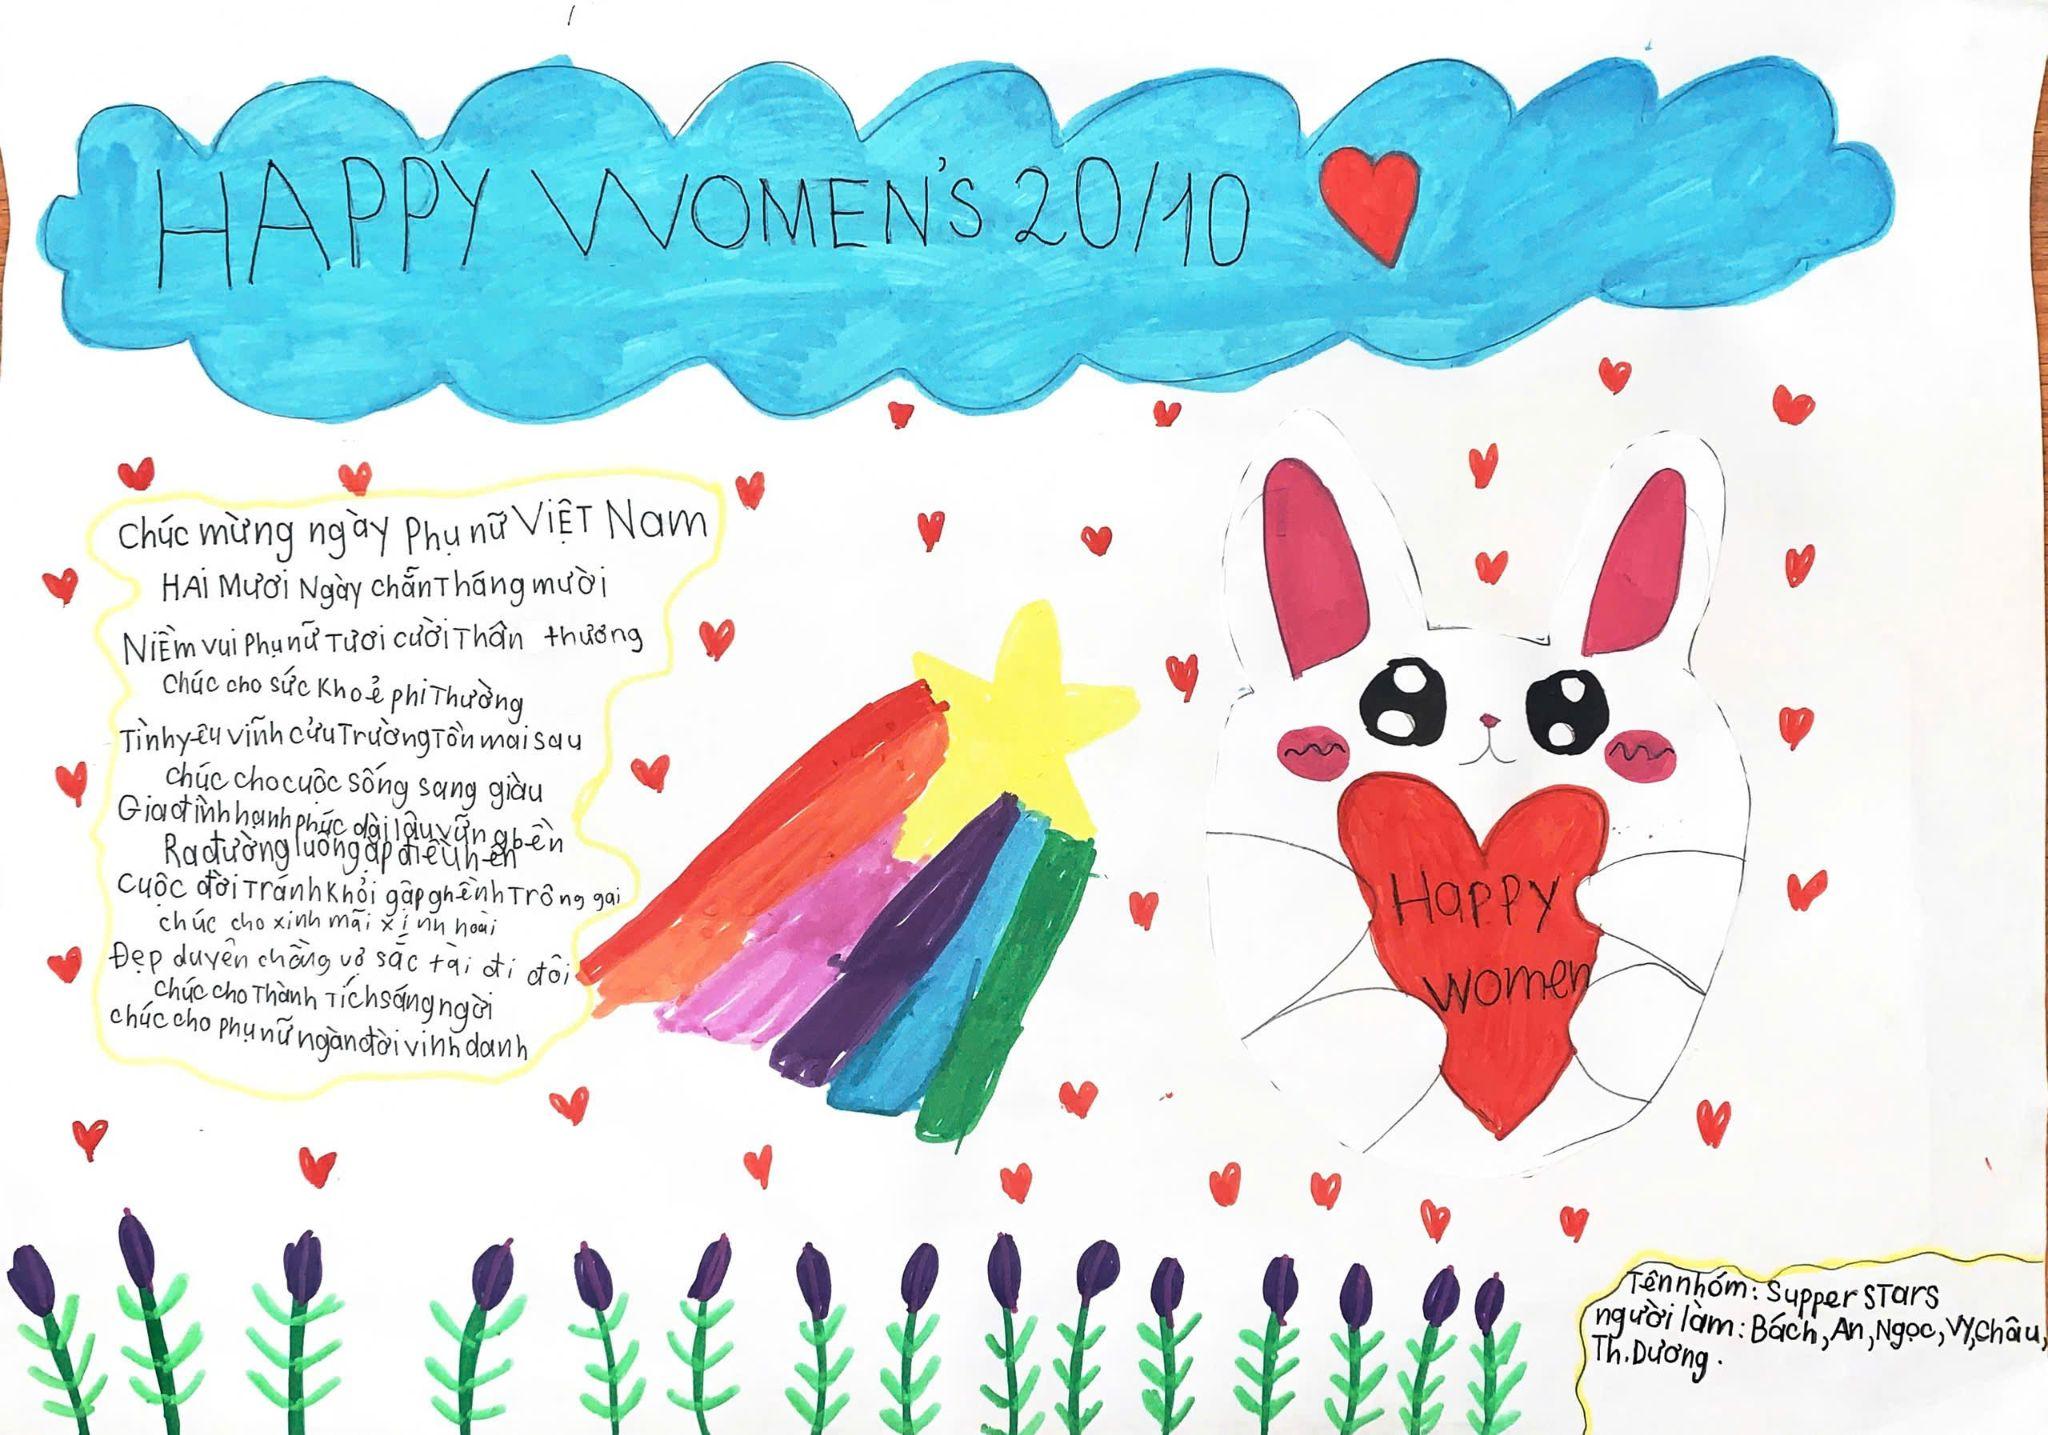 HAPPY WOMEN'S 20/10
Chúc mừng ngày Phụ nữ VIỆT Nam
HAi Mươi Ngày chẵn Tháng mười
NiỀm vui Phụ nữ Tươi cười Thân thương
Chúc cho sức Khoẻ phi Thường
Tình yêu vĩnh cửu Trường Tồn mai sau
chúc cho cuộc sống sang giàu
Gia đình hạnh phúc dài lâu vững bền
Ra đường luôn gặp điều hên
Cuộc đời Tránh Khỏi gập ghềnh Trông gai
chúc cho xinh mãi xinh hoài
Đẹp duyên chồng vợ sắc tài đi đôi
chúc cho Thành Tích sáng ngời
chúc cho phụ nữ ngàn đời vinh danh
Happy
women
Tên nhóm: Supper STARS
người làm: Bách, An, Ngọc, Vy, Châu,
Th. Dương.